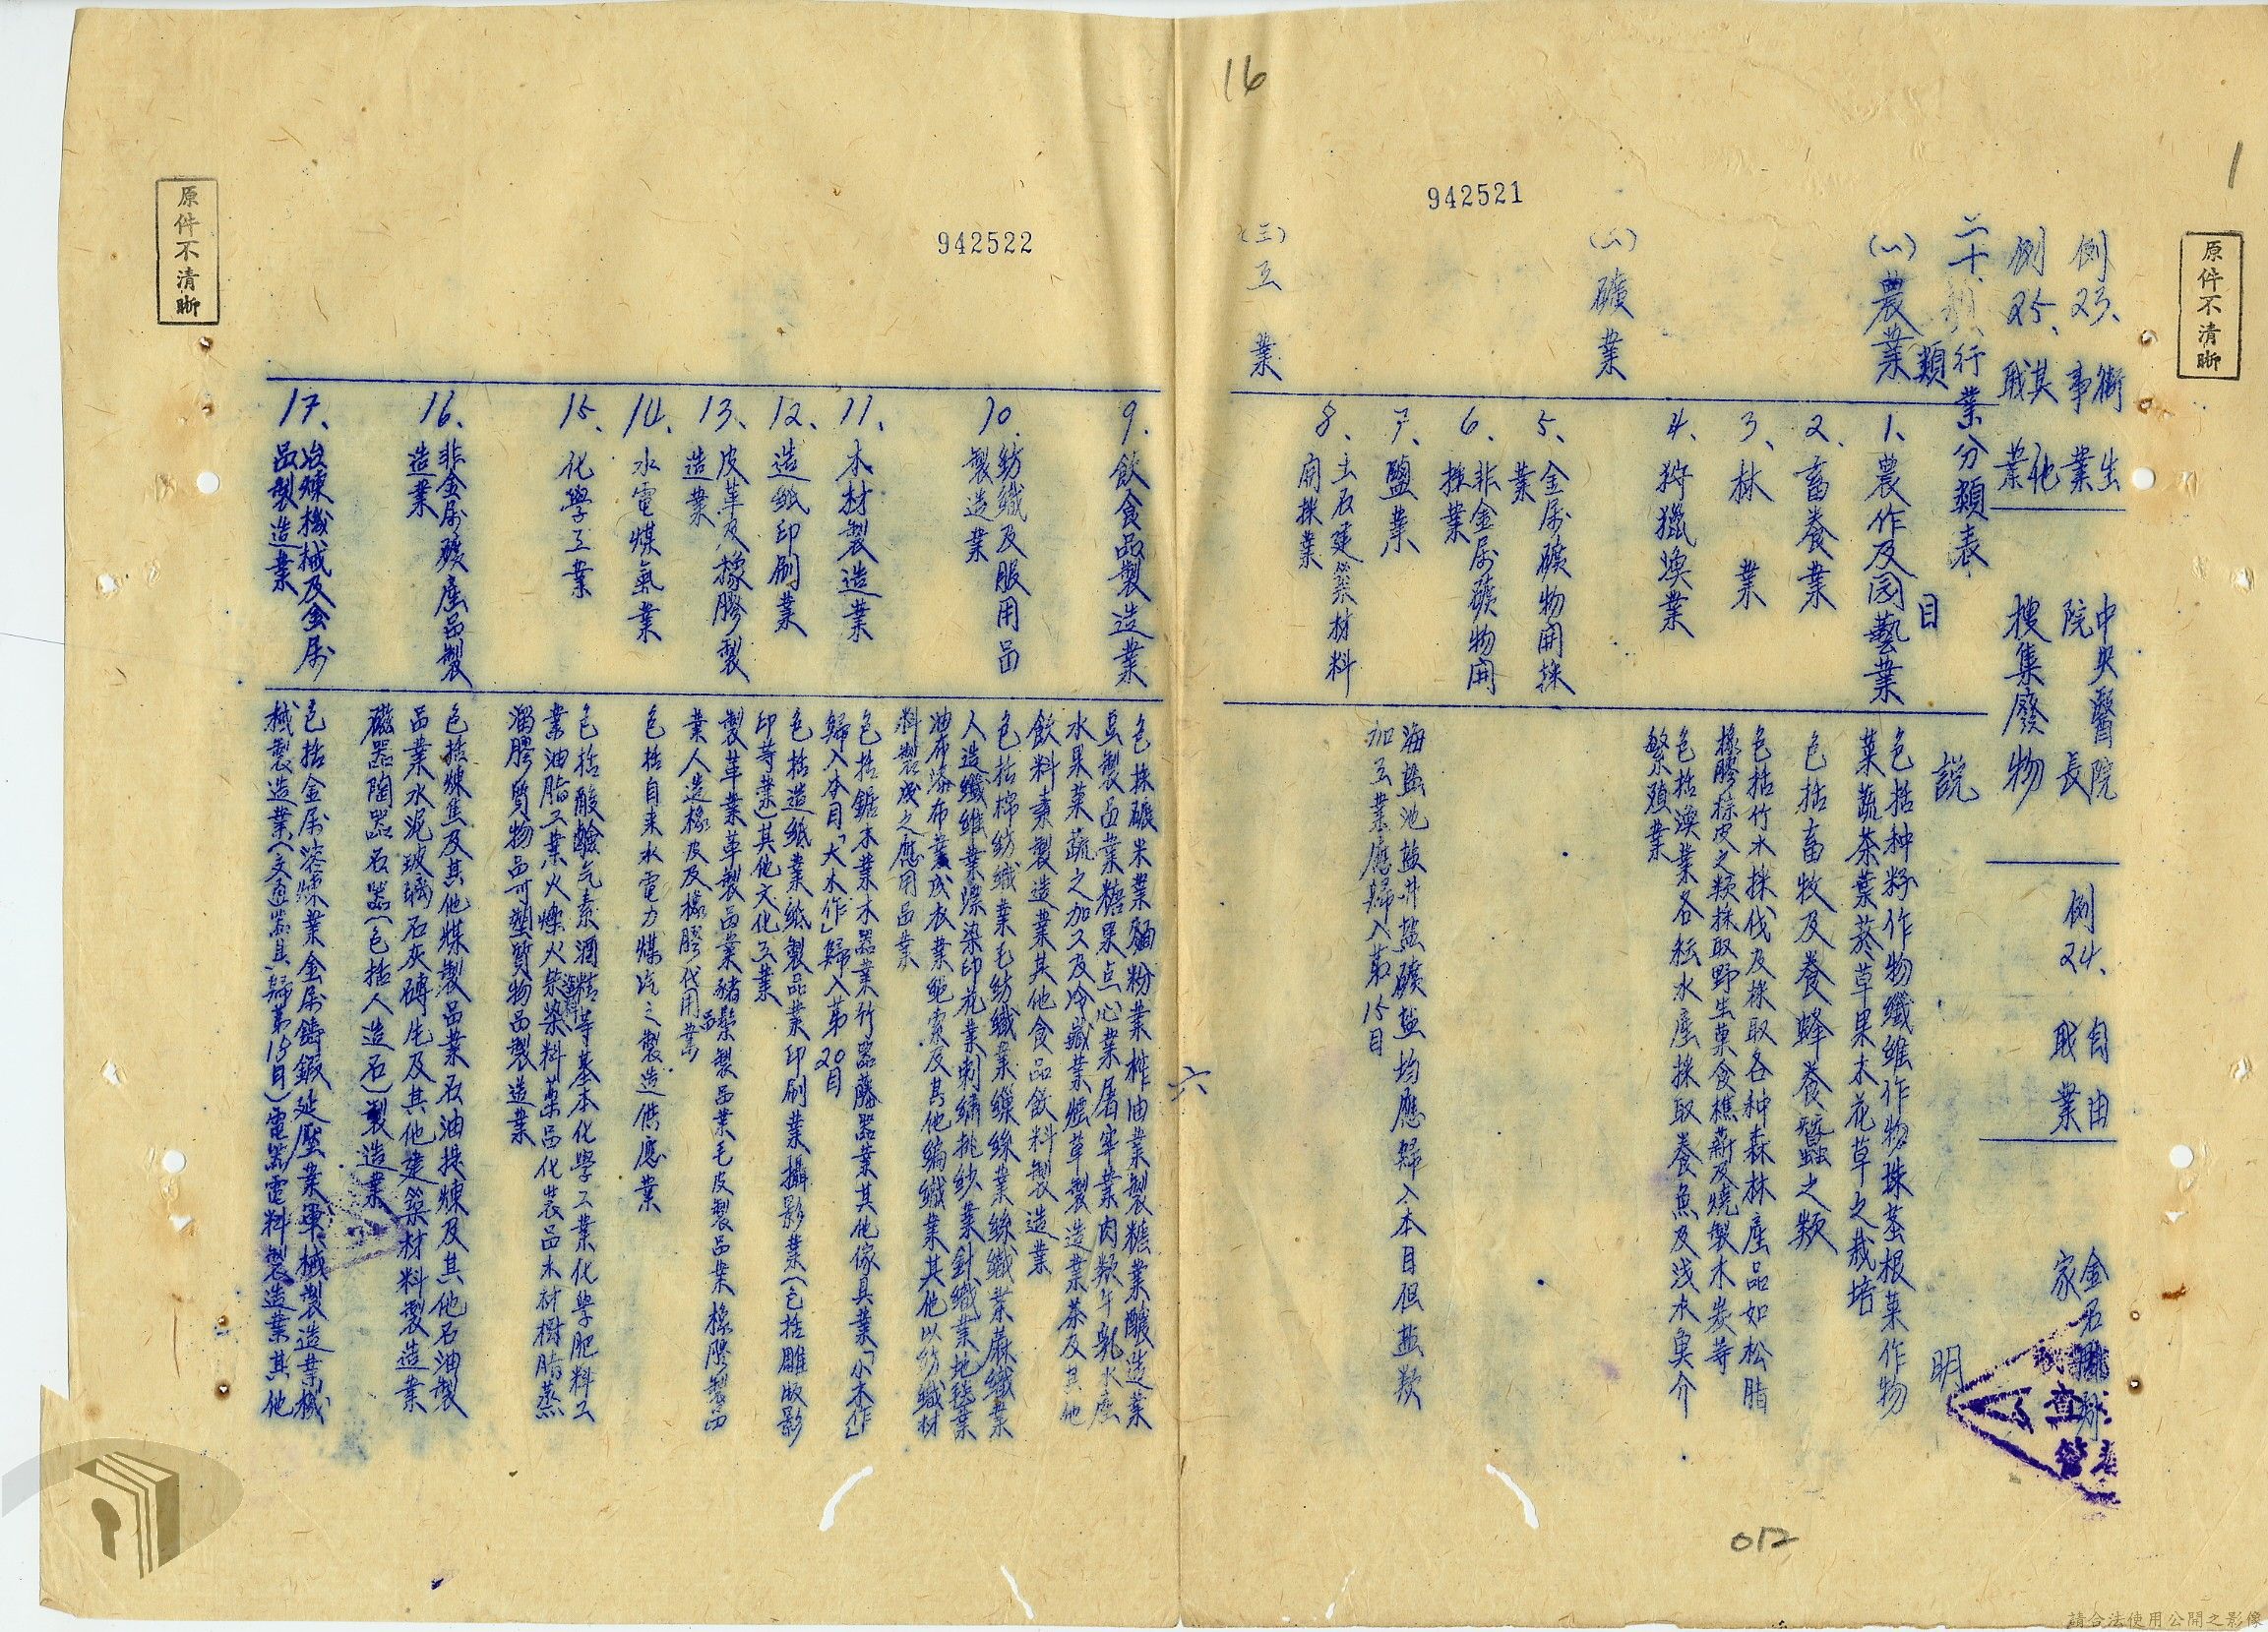 16
1
原件不清晰
原件不清晰
942521
942522
例23、衛生事業
中央醫院院長
例24、自由職業
例25、其他職業
搜集廢物
二十、行業分類表
類
目
說
明
(一)農業
1、農作及园藝業
包括种籽作物纖維作物珠莖根菓作物
菜蔬茶葉菸草果木花草之栽培
2、畜養業
包括畜牧及養蜂養蠶之類
3、林業
包括竹木採伐及採取各种森林產品如松脂
橡膠棕皮之類採取野生菓食樵薪及燒製木炭等
4、狩獵漁業
包括漁業各种水產採取養魚及浅水魚介
繁殖業
(二)礦業
5、金属礦物開採
業
6、非金属礦物開
採業
7、鹽業
海盐池盐井盐礦盐均應歸入本目但盐類
加工業應歸入苐15目
8、土石建築材料
開採業
(三)工業
9、飲食品製造業
包括碾米業麵粉業榨油業製糖業釀造業
豆製品業糖果点心業屠宰業肉類牛乳水產
水果菜蔬之加工及冷藏業煙草製造業茶及其他
飲料業製造業其他食品飲料製造業
10、紡織及服用品
製造業
包括棉紡織業毛紡織業繅絲業絲織業蔴織業
人造纖維業漂染印花業刺繡挑紗業針織業地毯業
油布漆布業成衣業繩索及其他編織業其他以紡織材
料製成之應用品業
11、木材製造業
包括鋸木業木器業竹器藤器業其他傢具業「小木作」
歸入本目「大木作」歸入苐20目
12、造紙印刷業
包括造紙業紙製品業印刷業攝影業(包括雕版影
印等業)其他文化工業
13、皮革及橡膠製
造業
製革業革製品業豬鬃製品業毛皮製品業橡膠製品
業人造橡及及橡膠代用品業
14、水電煤氣業
包括自来水電力煤汽之製造供應業
15、化學工業
包括酸鹼气素酒精等基本化學工業化學肥料工
業油脂工業火燦火柴染料葯品化装品木材樹脂蒸
溜膠質物品可塑質物品製造業
16、非金属礦產品製
造業
包括煉焦及其他煤製品業石油提煉及其他石油製
品業水泥玻璃石灰磚瓦及其他建築材料製造業
磁器陶器石器(包括人造石)製造業
17、冶煉機械及金属
品製造業
包括金属溶煉業金属鑄鍛延壓業軍械製造業機
械製造業(交通器具歸苐18目)電器電料製造業其他
六
012
請合法使用公開之影像